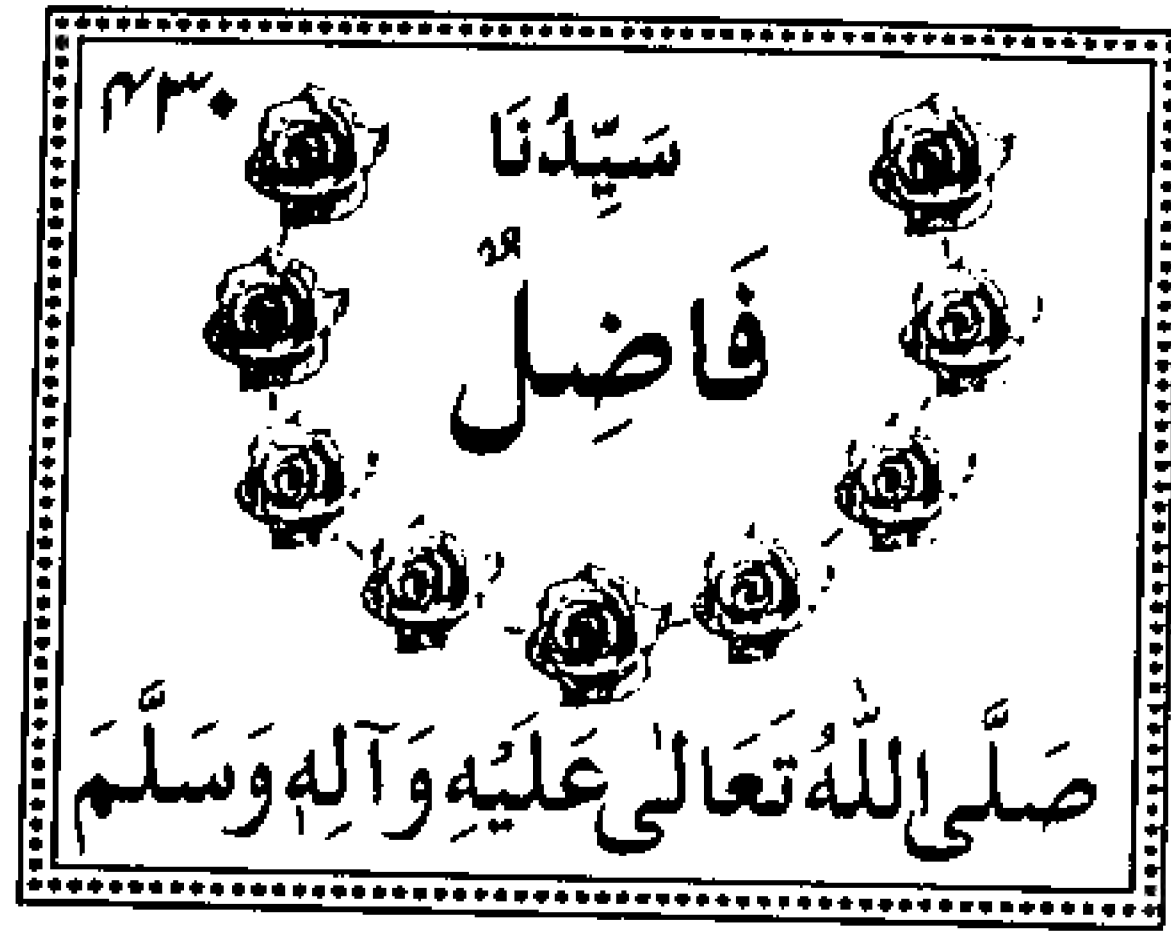 سَيِّدُنَا
فَاضِلٌ
صَلَّى اللّٰهُ تَعَالٰى عَلَيْهِ وَآلِهٖ وَسَلَّمَ